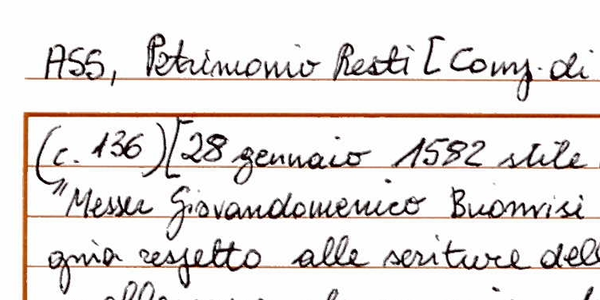 ASS, Patrimonio Resti [Comp. di
(c. 136) [28 gennaio 1582 stile
"Messer Giovandomenico Buonvisi
gnia respetto alle scritture dell